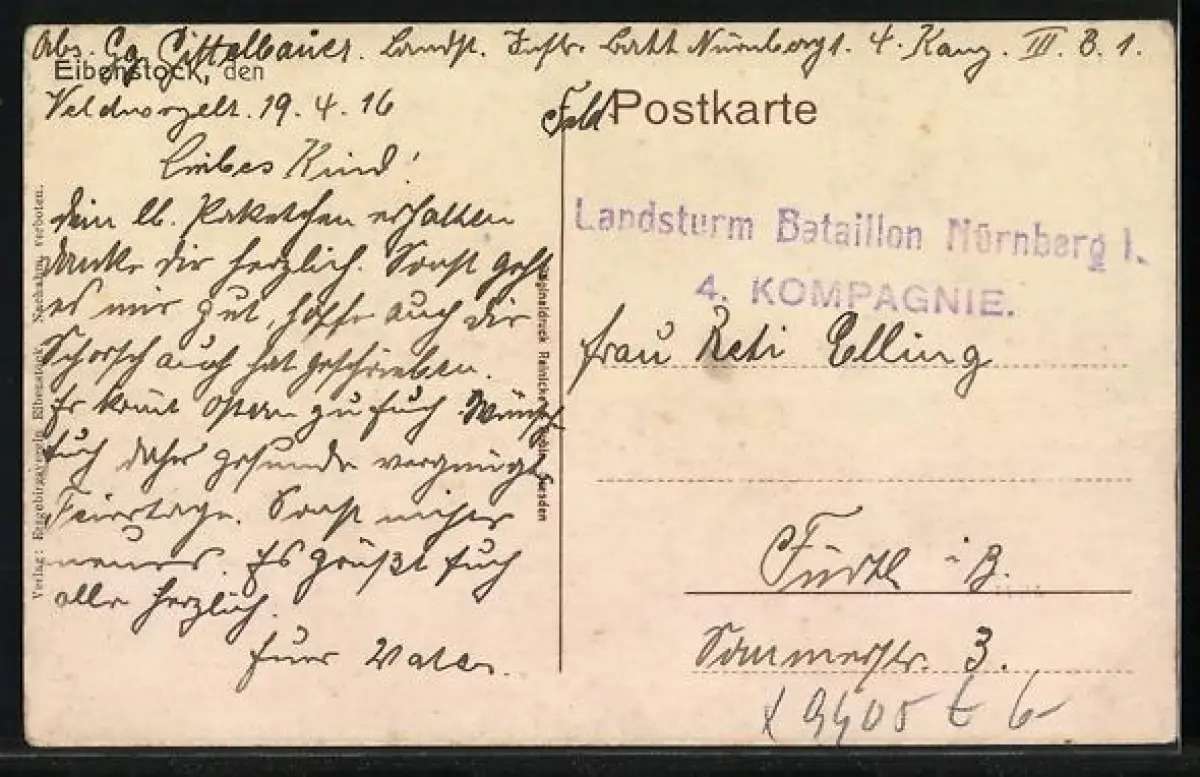 Abs. Gg. Gittelbauer. Landst. Inftr. Batt Nürnberg 1. 4. Komp. III. B. 1.
Eibenstock, den
19. 4. 16
Liebes Kind!
Dein lb. Paketchen erhalten
danke dir herzlich. Sonst geht
es mir gut, hoffe auch dir
Schorsch auch hat geschrieben.
Er komt Ostern zu Euch. Wünsche
Euch daher gesunde vergnügte
Feiertage. Sonst nichts
neues. Es grüßt Euch
alle herzlich.
Euer Vater.
Verlag: Erzgebirgsverein Eibenstock. Nachahm. verboten.
Originaldruck Reinicke Dresden
Feld Postkarte
Landsturm Bataillon Nürnberg I.
4. KOMPAGNIE.
Frau Reti Elling
Fürth i B.
Sommerstr. 3.